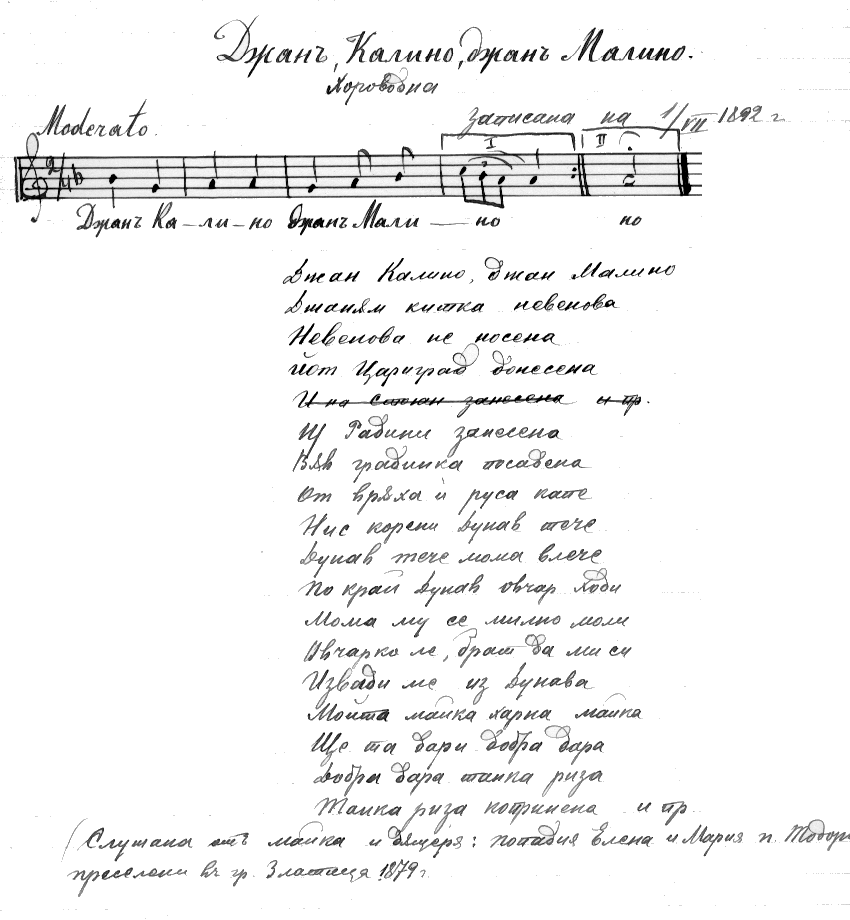 Джанъ, Калино, джанъ Малино.
Хороводна
Moderato.
записана на 1/VII 1892 г
I
II
2/4
3
Джанъ Ка–ли–но джанъ Мали — но но
Джан Калино, джан Малино
Джанъм китка невенова
Невенова не носена
Йот Цариград донесена
И на Стоян занесена и пр.
Щ Радини занесена
Във градинка посадена
От вряха ѝ руса капе
Нис корени Дунав тече
Дунав тече мома влече
По край Дунав овчар ходи
Мома му се милно моли
Овчарко ле, брат да ми си
Извади ме из Дунава
Мойта майка харна майка
Ще та дари добра дара
Добра дара танка риза
Танка риза копринена и пр
(Слушана отъ майка и дъщеря: попадия Елена и Мария п. Тодор
преселени въ гр. Златица 1879 г.